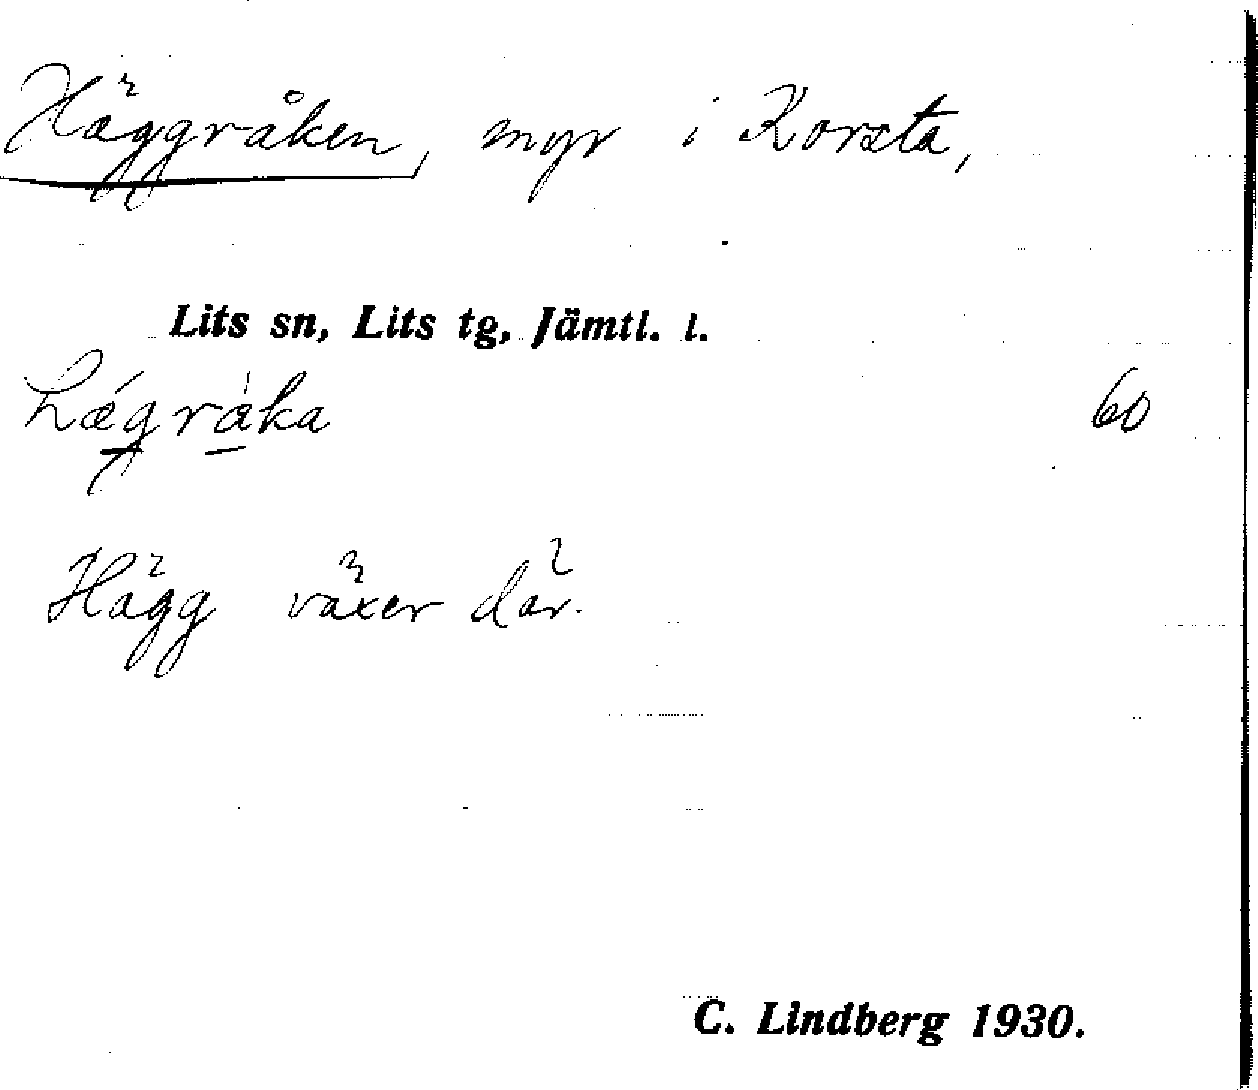 Häggråken, myr i Korsta,
Lits sn, Lits tg, Jämtl. l.
60
Hägg växer där.
C. Lindberg 1930.